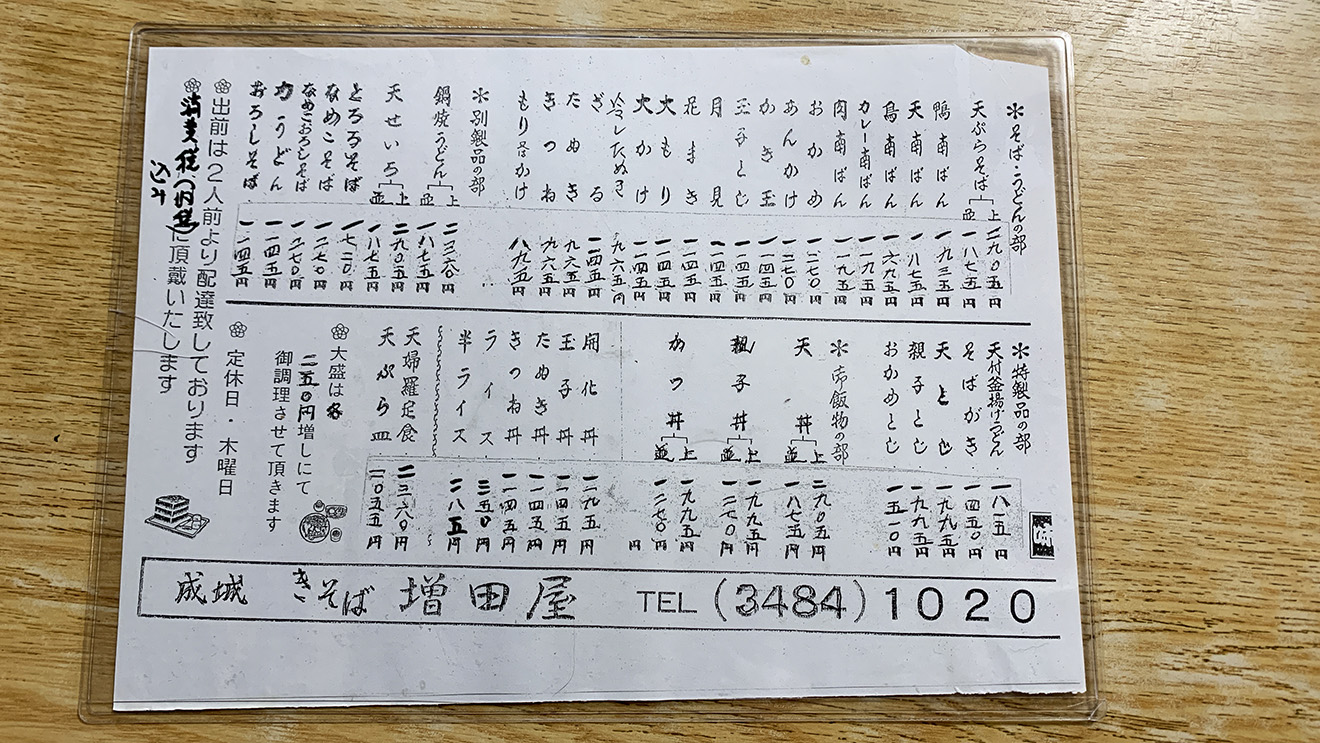 ＊そば・うどんの部
天ぷらそば 上 二九〇五円
並 一八七五円
鴨南ばん 一九三五円
天南ばん 一八七五円
鳥南ばん
カレー南ばん 一一九五円
肉南ばん 一一九五円
おかめ 一二七〇円
あんかけ 一二七〇円
かき玉 一一四五円
玉子とじ 一一四五円
月見 一一四五円
花まき 一一四五円
大もり 一一四五円
大かけ 一一四五円
冷したぬき 九六五円
ざる 一一四五円
たぬき 九六五円
きつね 九六五円
もり・かけ 八九五円
＊別製品の部
鍋焼うどん 上 二三六〇円
並 一八七五円
天せいろ 上 二九〇五円
並 一八七五円
とろろそば 一七二〇円
なめこそば 一二七〇円
なめこおろしそば 一二七〇円
力うどん 一一四五円
おろしそば 一一四五円
＊特製品の部
天付釜揚げうどん 一八一五円
そばがき 一四五〇円
天とじ 一九九五円
親子とじ 一九九五円
おかめとじ 一五一〇円
＊御飯物の部
天丼 上 二九〇五円
並 一八七五円
親子丼 上 一九九五円
並 一二七〇円
かつ丼 上 一九九五円
並 一二七〇円
円
開化丼 一二九五円
玉子丼 一一四五円
たぬき丼 一一四五円
きつね丼 一一四五円
ライス 三五〇円
半ライス 二八五円
天婦羅定食 二三六〇円
天ぷら皿 二〇五五円
大盛は各
二五〇円増しにて
御調理させて頂きます
定休日・木曜日
出前は２人前より配達致しております
消費税(内税)込み に頂戴いたします
成城 きそば 増田屋 TEL (3484) 1020